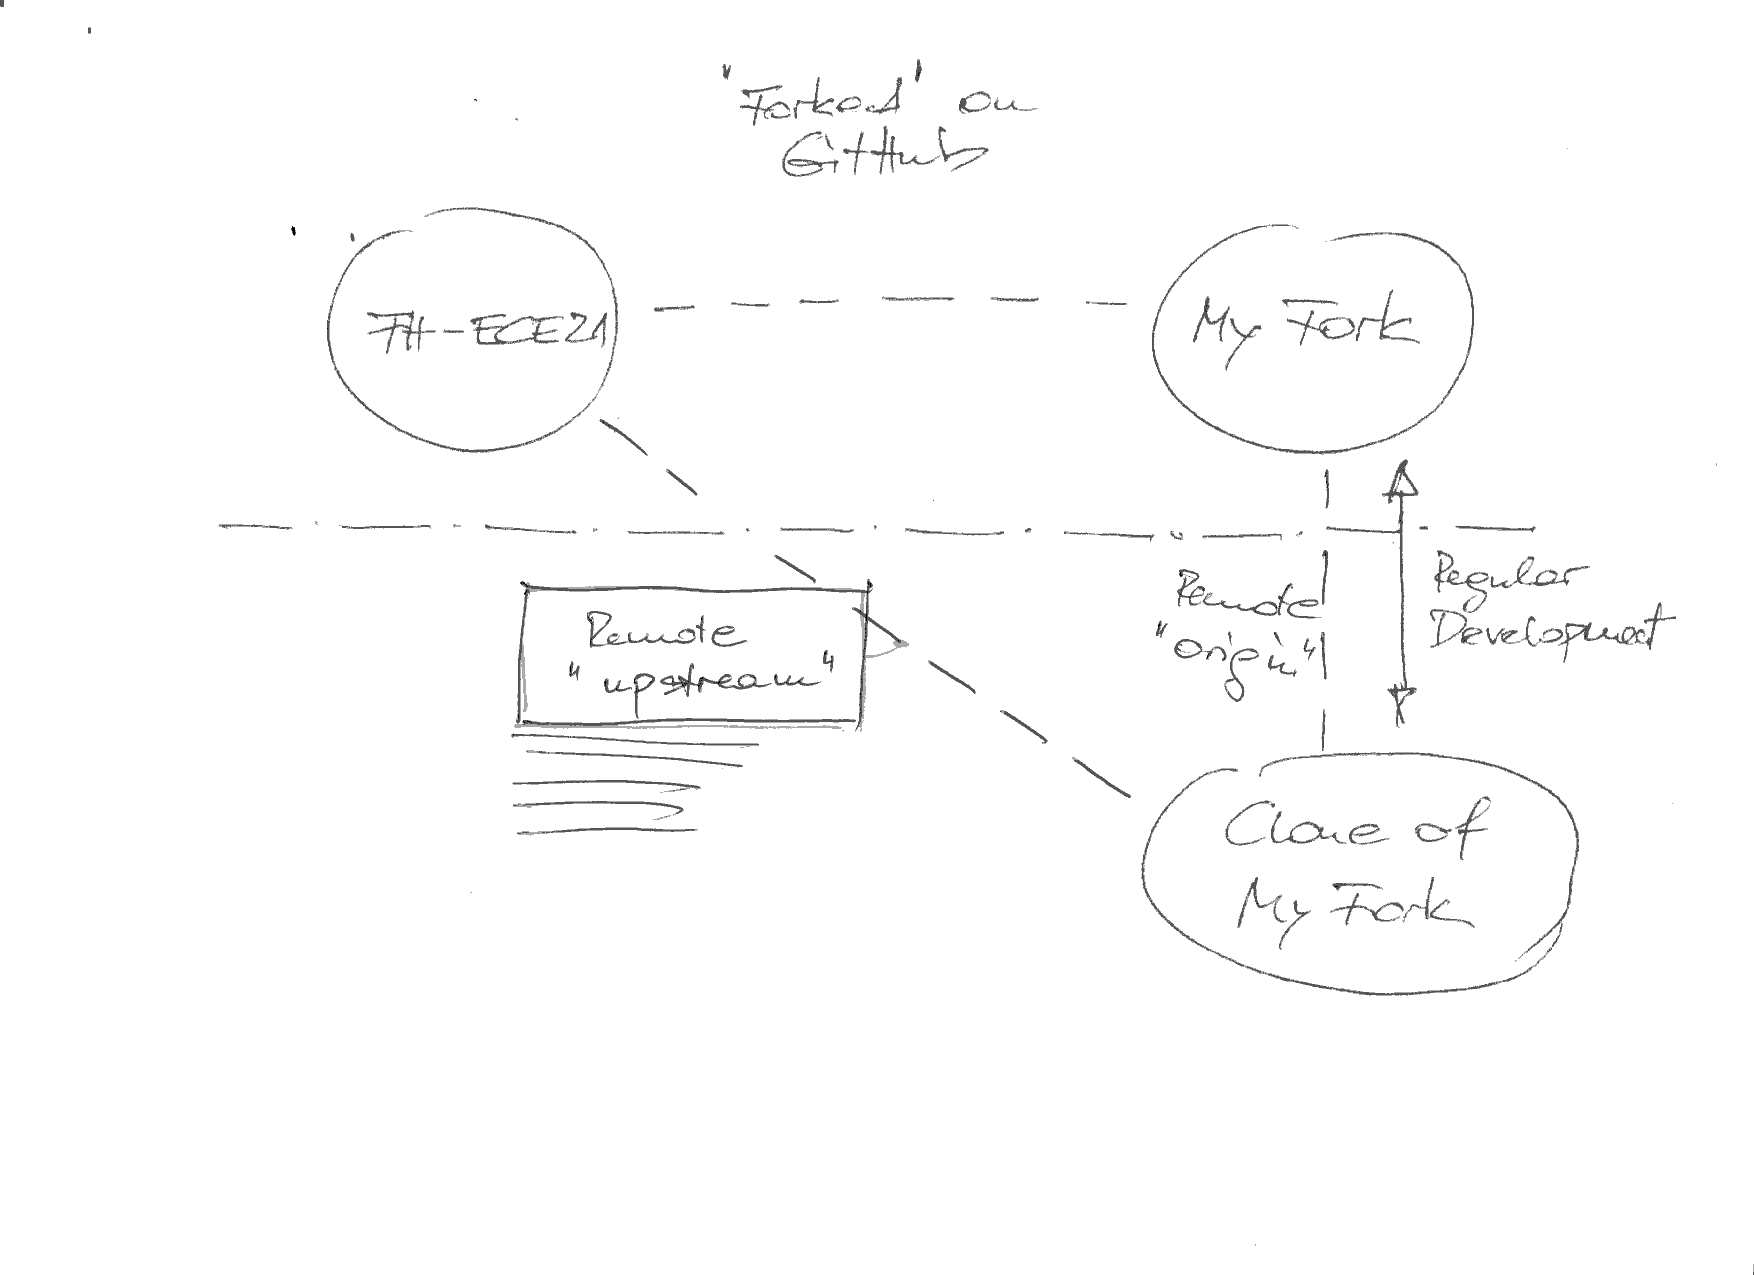 "Forked" on
GitHub
FH-ECE21
My Fork
Remote
"upstream"
Remote
"origin"
Regular
Development
Clone of
My Fork